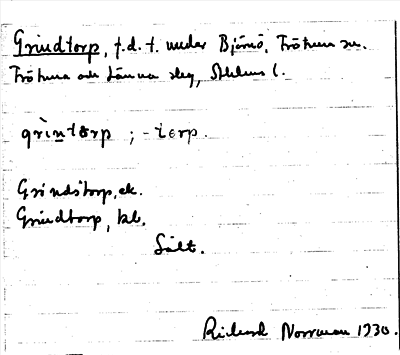 Grindtorp, f.d.t. under Björnö, Frötuna sn.
Frötuna och Länna slg, Sthlms l.
grìntɵrp ; -tɛrp.
Grindstorp, ek.
Grindtorp, kb.
Sält.
Rickard Norrman 1930.